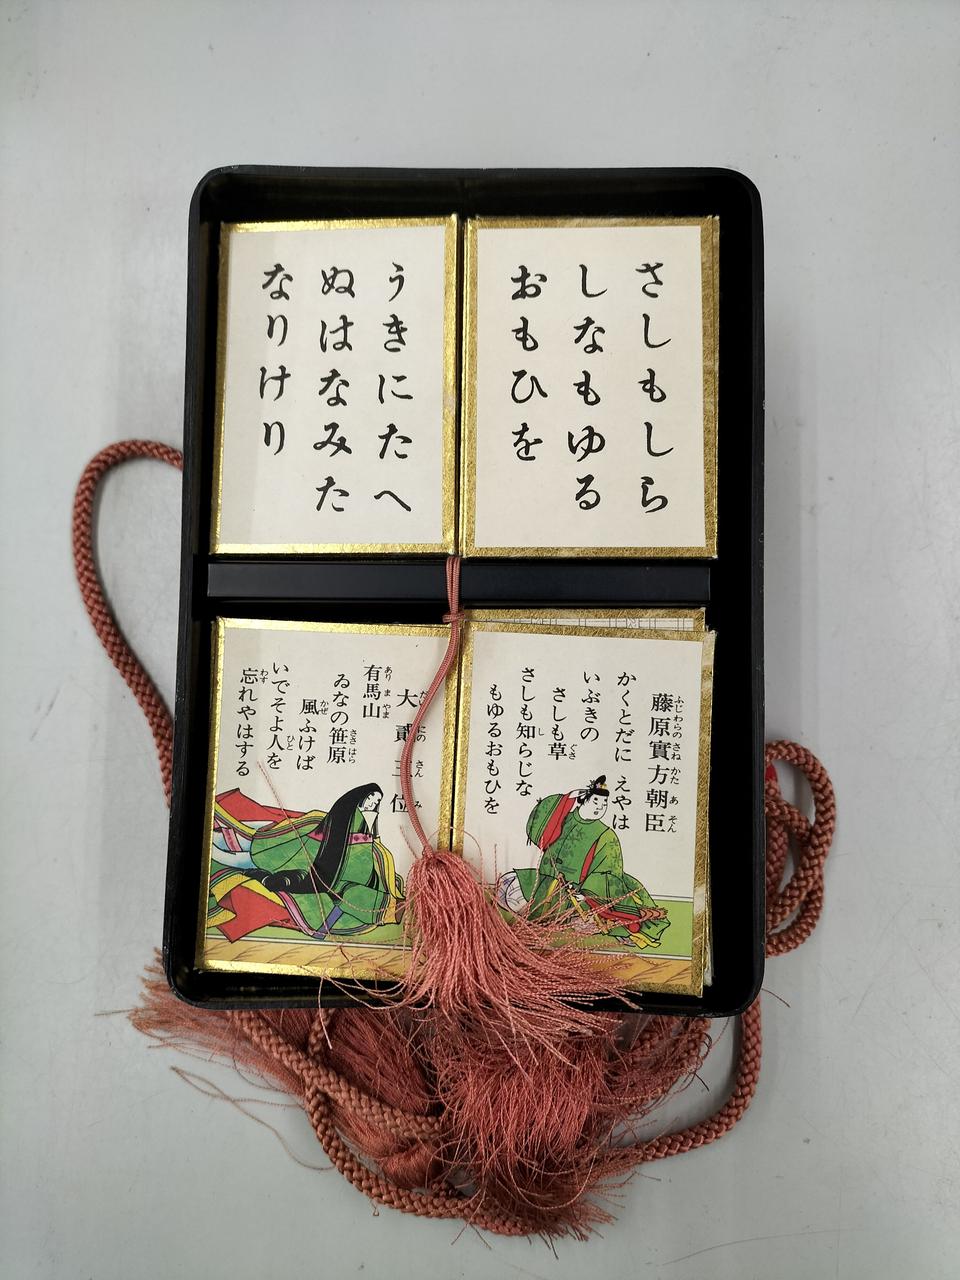 さしもしら
しなもゆる
おもひを
うきにたへ
ぬはなみた
なりけり
藤原實方朝臣
かくとだに えやは
いぶきの
さしも草
さしも知らじな
もゆるおもひを
大貳三位
有馬山
ゐなの笹原
風ふけば
いでそよ人を
忘れやはする